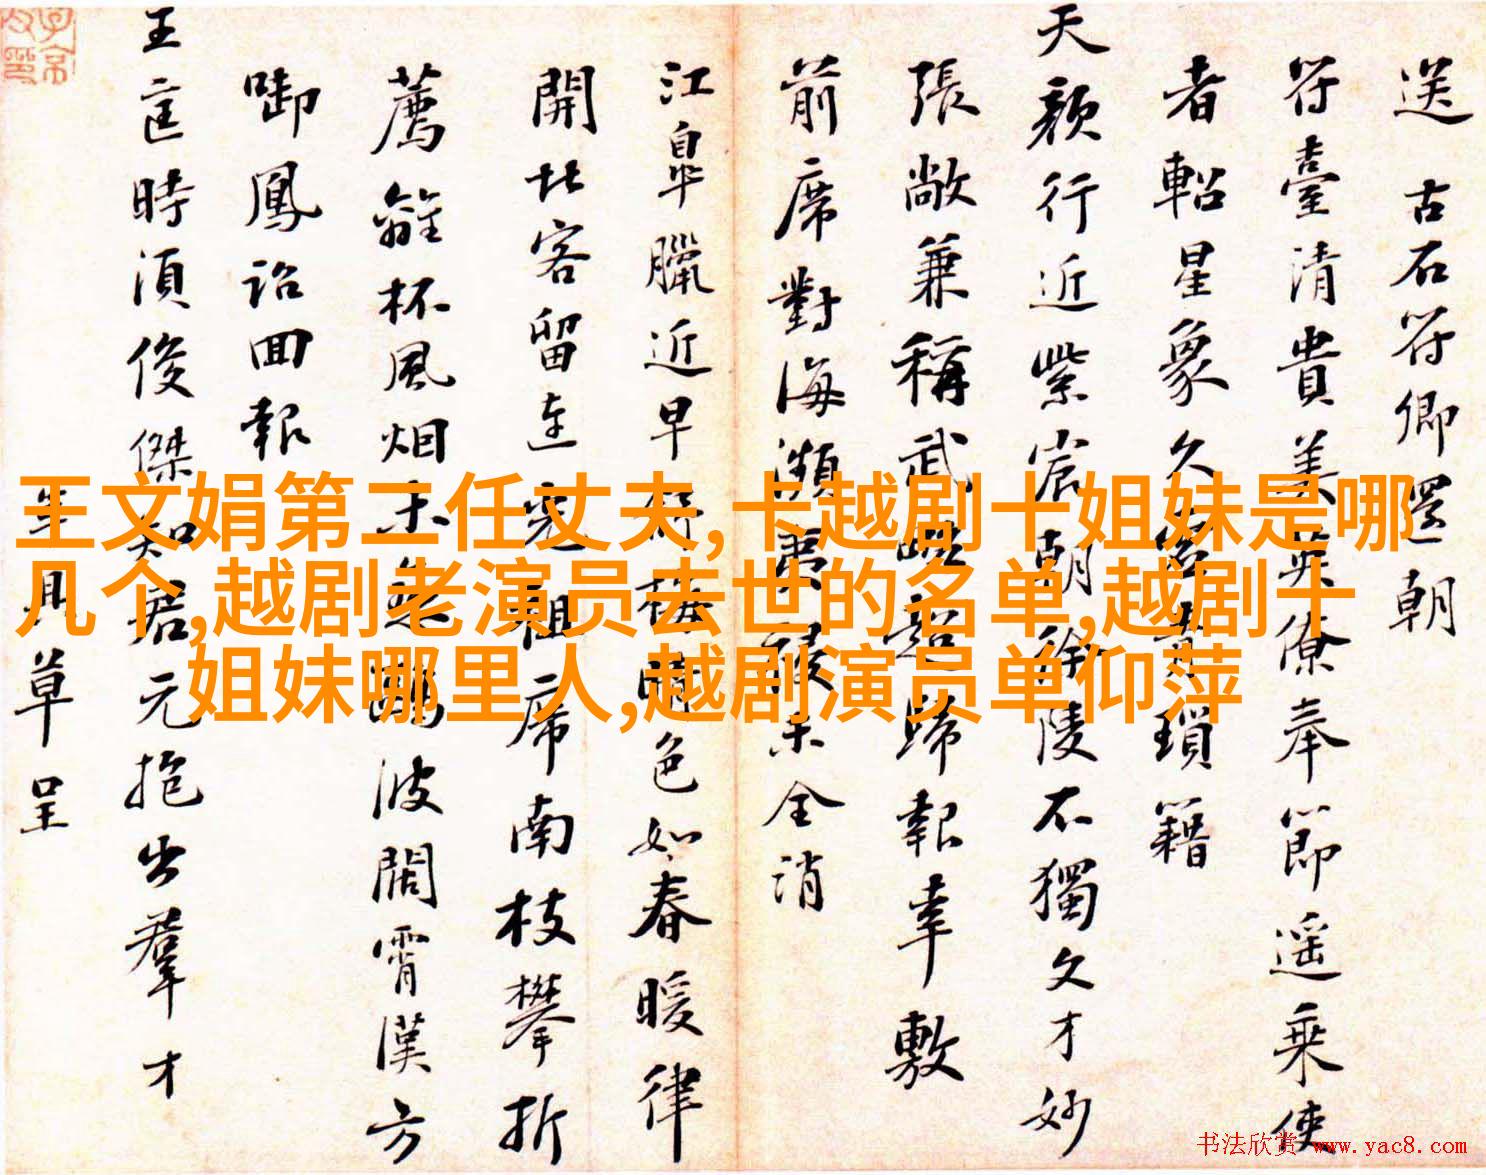 送古石符卿還朝
符臺清貴美英僚奉節遥乘使
者軺星象久瑣籍
天顏行近紫宸朝徐陵不獨文才妙
張敞兼稱武歸報幸敷
前席對海瀕未全消
江皐臘近早梅色如春暖律
開北客留連祖席南枝攀折
薦離杯風烟未波闊霄漢方
啣鳳詔回報
王匡時須俊傑知君元抱出羣才
草呈
王文娟第二任丈夫,卡越剧十姐妹是哪
几个,越剧老演员去世的名单,越剧十
姐妹哪里人,越剧演员单仰萍
书法欣赏 www.yac8.com